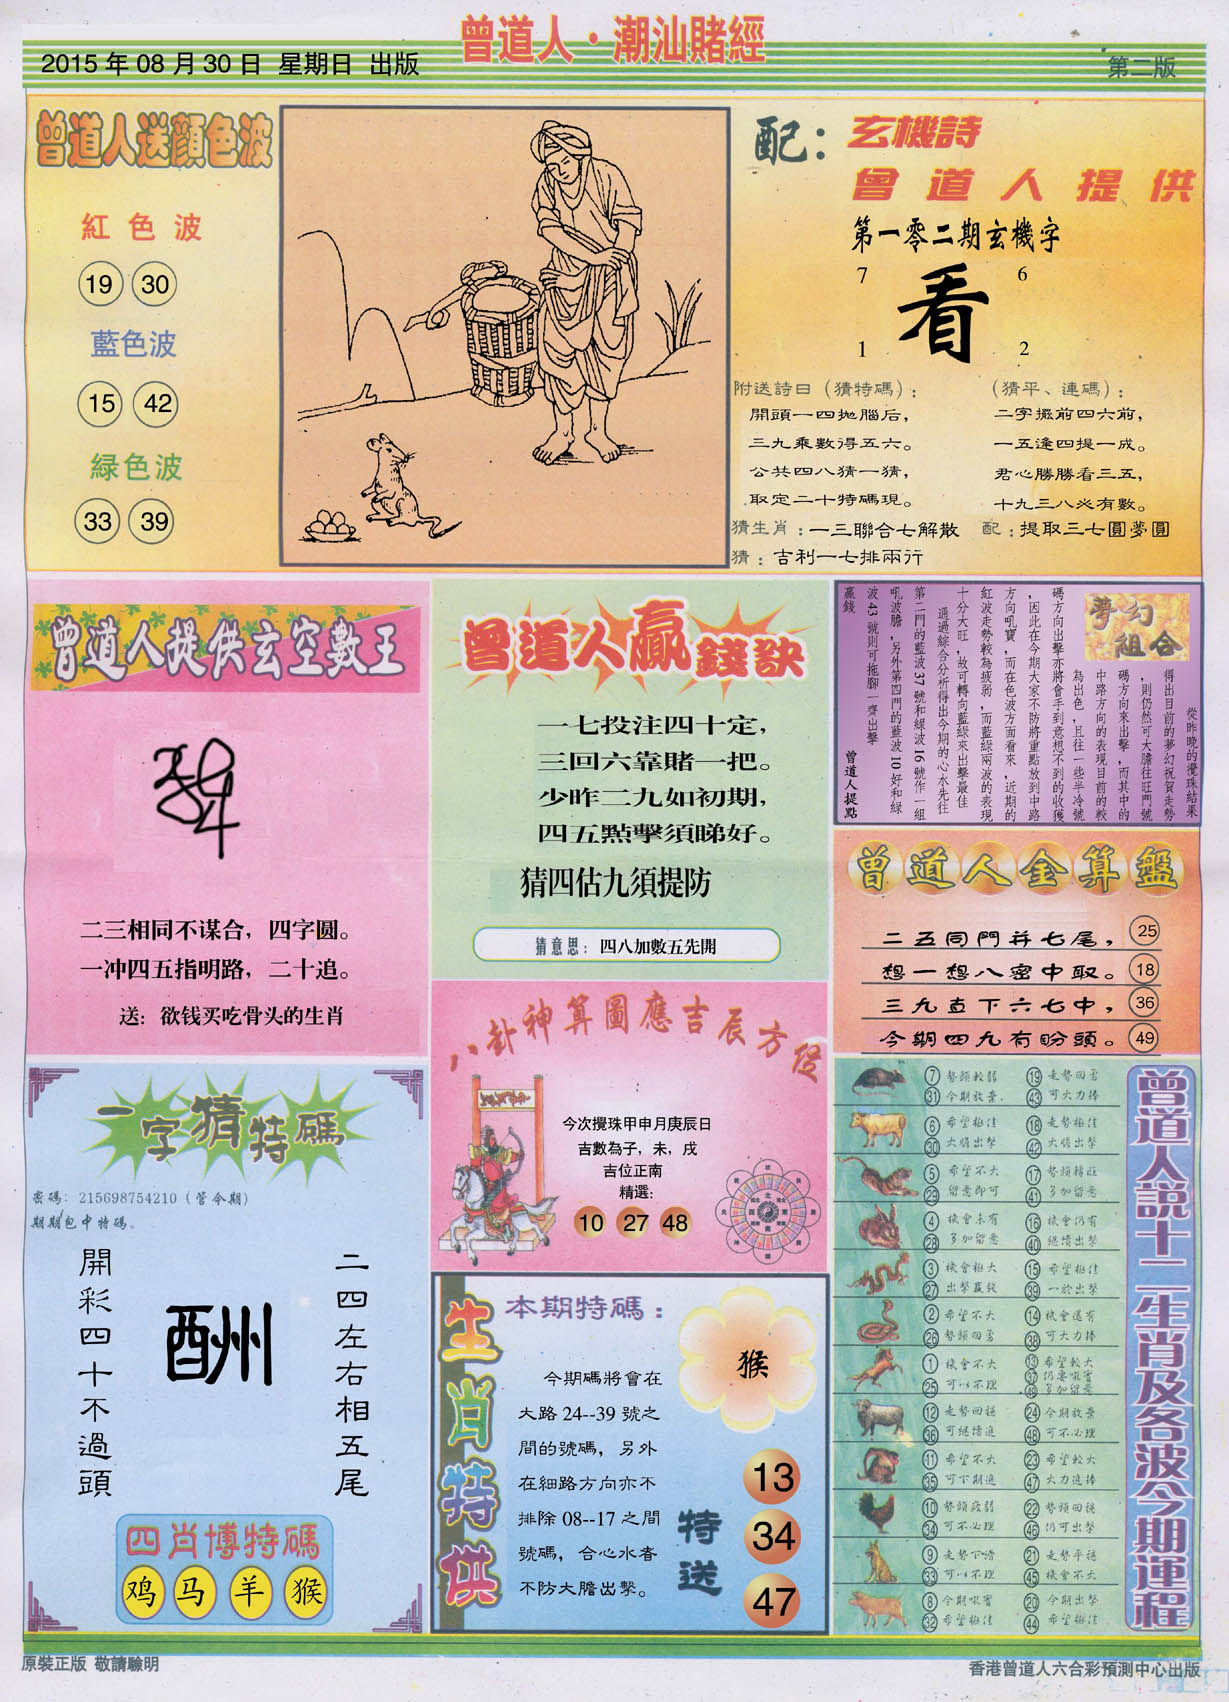 曾道人·潮汕賭經
2015年08月30日 星期日 出版
第二版
曾道人送顏色波
紅色波
19 30
藍色波
15 42
緑色波
33 39
配：玄機詩
曾道人提供
第一零二期玄機字
7 6
看
1 2
附送詩曰（猜特碼）：
開頭一四拋腦后，
三九乘數得五六。
公共四八猜一猜，
取定二十特碼現。
（猜平、連碼）：
二字擺前四六前，
一五逢四提一成。
君心勝勝看三五，
十九三八必有數。
猜生肖：一三聯合七解散
配：提取三七圓夢圓
猜：吉利一七排兩行
曾道人提供玄空數王
二三相同不谋合，四字圆。
一冲四五指明路，二十追。
送：欲钱买吃骨头的生肖
曾道人贏錢訣
一七投注四十定，
三回六靠賭一把。
少昨二九如初期，
四五點擊須睇好。
猜四估九須提防
猜意思：四八加數五先開
夢幻組合
從昨晚的攪珠結果
得出目前的夢幻祝賀走勢
，則仍然可大膽往旺門號
碼方向來出擊，而其中的
中路方向的表現目前的較
為出色，且往一些半冷號
碼方向出擊亦將會手到意想不到的收獲
，因此在今期大家不防將重點放到中路
方向吼寶，而在色波方面看來，近期的
紅波走勢較為疲弱，而藍綠兩波的表現
十分大旺，故可轉向藍綠來出擊最佳
通過綜合分析得出今期的心水先往
第二門的藍波37號和綠波16號作一組
吼波膽，另外第四門的藍波10好和綠
波43號則可拖腳一齊出擊
贏錢
曾道人提點
曾道人金算盤
二五同門并七尾， 25
想一想八密中取。 18
三九直下六七中， 36
今期四九有盼頭。 49
八卦神算圖應吉辰方位
今次攪珠甲申月庚辰日
吉數為子，未，戌
吉位正南
精選：
10 27 48
一字猜特碼
密碼：215698754210（管今期）
期期包中特碼。
二四左右相五尾
酬
開彩四十不過頭
四肖博特碼
鸡 马 羊 猴
生肖特供
本期特碼：
猴
今期碼將會在
大路24--39號之
間的號碼，另外
在細路方向亦不
排除08--17之間
號碼，合心水者
不防大膽出擊。
特送
13
34
47
曾道人説十二生肖及各波今期運程
7 勢頭較弱 19 走勢回勇
31 今期放棄. 43 可大力捧
6 希望極佳 18 走勢極佳
30 大膽出擊 42 大膽出擊
5 希望不大 17 勢頭轉旺
29 留意即可 41 多加留意
4 機會未有 16 機會仍有
28 多加留意 40 繼續出擊
3 機會極大 15 希望極佳
27 出擊贏錢 39 一於出擊
2 希望不大 14 機會還有
26 勢頭回勇 38 可大力捧
1 機會不大 13 希望較大
25 可以不理 37 仍要吸實
49 多加留意
12 走勢回穩 24 今期放棄
36 可繼續追 48 可不必理
11 希望不大 23 希望較大
35 可下期追 47 大力追捧
10 勢頭疲弱 22 勢頭回穩
34 可不必理 46 仍可出擊
9 走勢下滑 21 走勢平穩
33 可以不理 45 機會不大
8 今期吸實 20 今期出擊
32 希望極佳 44 希望極佳
原裝正版 敬請驗明
香港曾道人六合彩預測中心出版